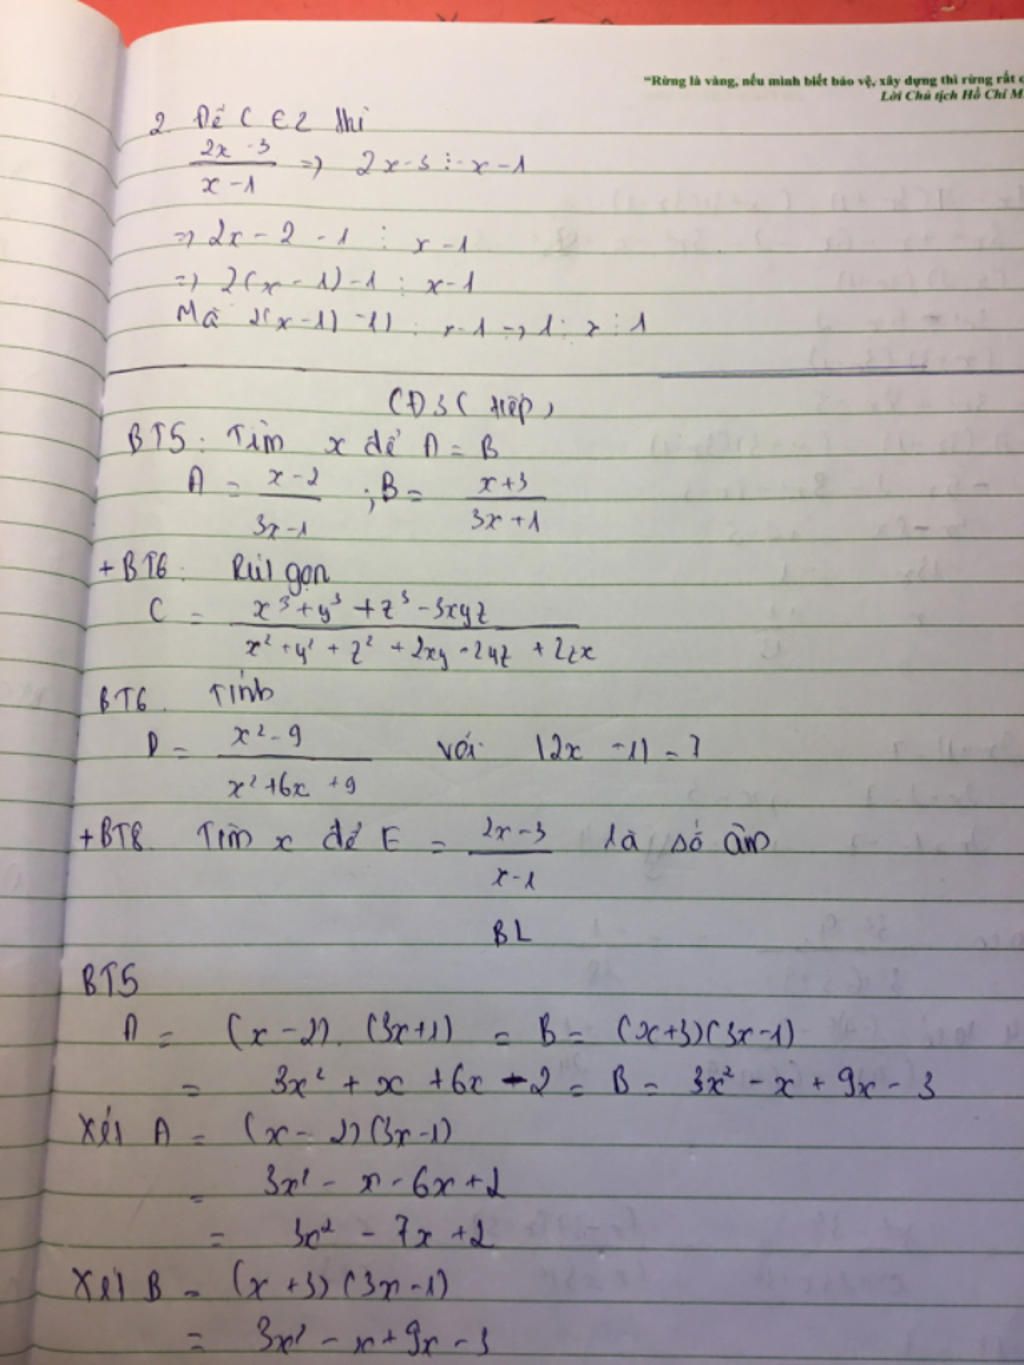 "Rừng là vàng, nếu mình biết bảo vệ, xây dựng thì rừng rất
Lời Chủ tịch Hồ Chí M
2. Để C ∈ Z thì
(2x - 3)/(x - 1) => 2x - 3 ⋮ x - 1
=> 2x - 2 - 1 ⋮ x - 1
=> 2(x - 1) - 1 ⋮ x - 1
Mà 2(x - 1) - 1) ⋮ x - 1 => 1 ⋮ x ⋮ 1
CĐ3 ( tiếp )
BT5: Tìm x để A = B
A = (x - 2)/(3x - 1) ; B = (x + 3)/(3x + 1)
+ BT6: Rút gọn
C = (x³ + y³ + z³ - 3xyz)/(x² + y² + z² + 2xy + 2yz + 2zx)
BT6. Tính
D = (x² - 9)/(x² + 6x + 9) với |2x - 1| = 7
+ BT8. Tìm x để E = (2x - 3)/(x - 1) là số âm
BL
BT5
A = (x - 2). (3x + 1) = B = (x + 3)(3x - 1)
= 3x² + x + 6x - 2 = B = 3x² - x + 9x - 3
Xét A = (x - 2)(3x - 1)
= 3x² - x - 6x + 2
= 3x² - 7x + 2
Xét B = (x + 3)(3x - 1)
= 3x² - x + 9x - 3